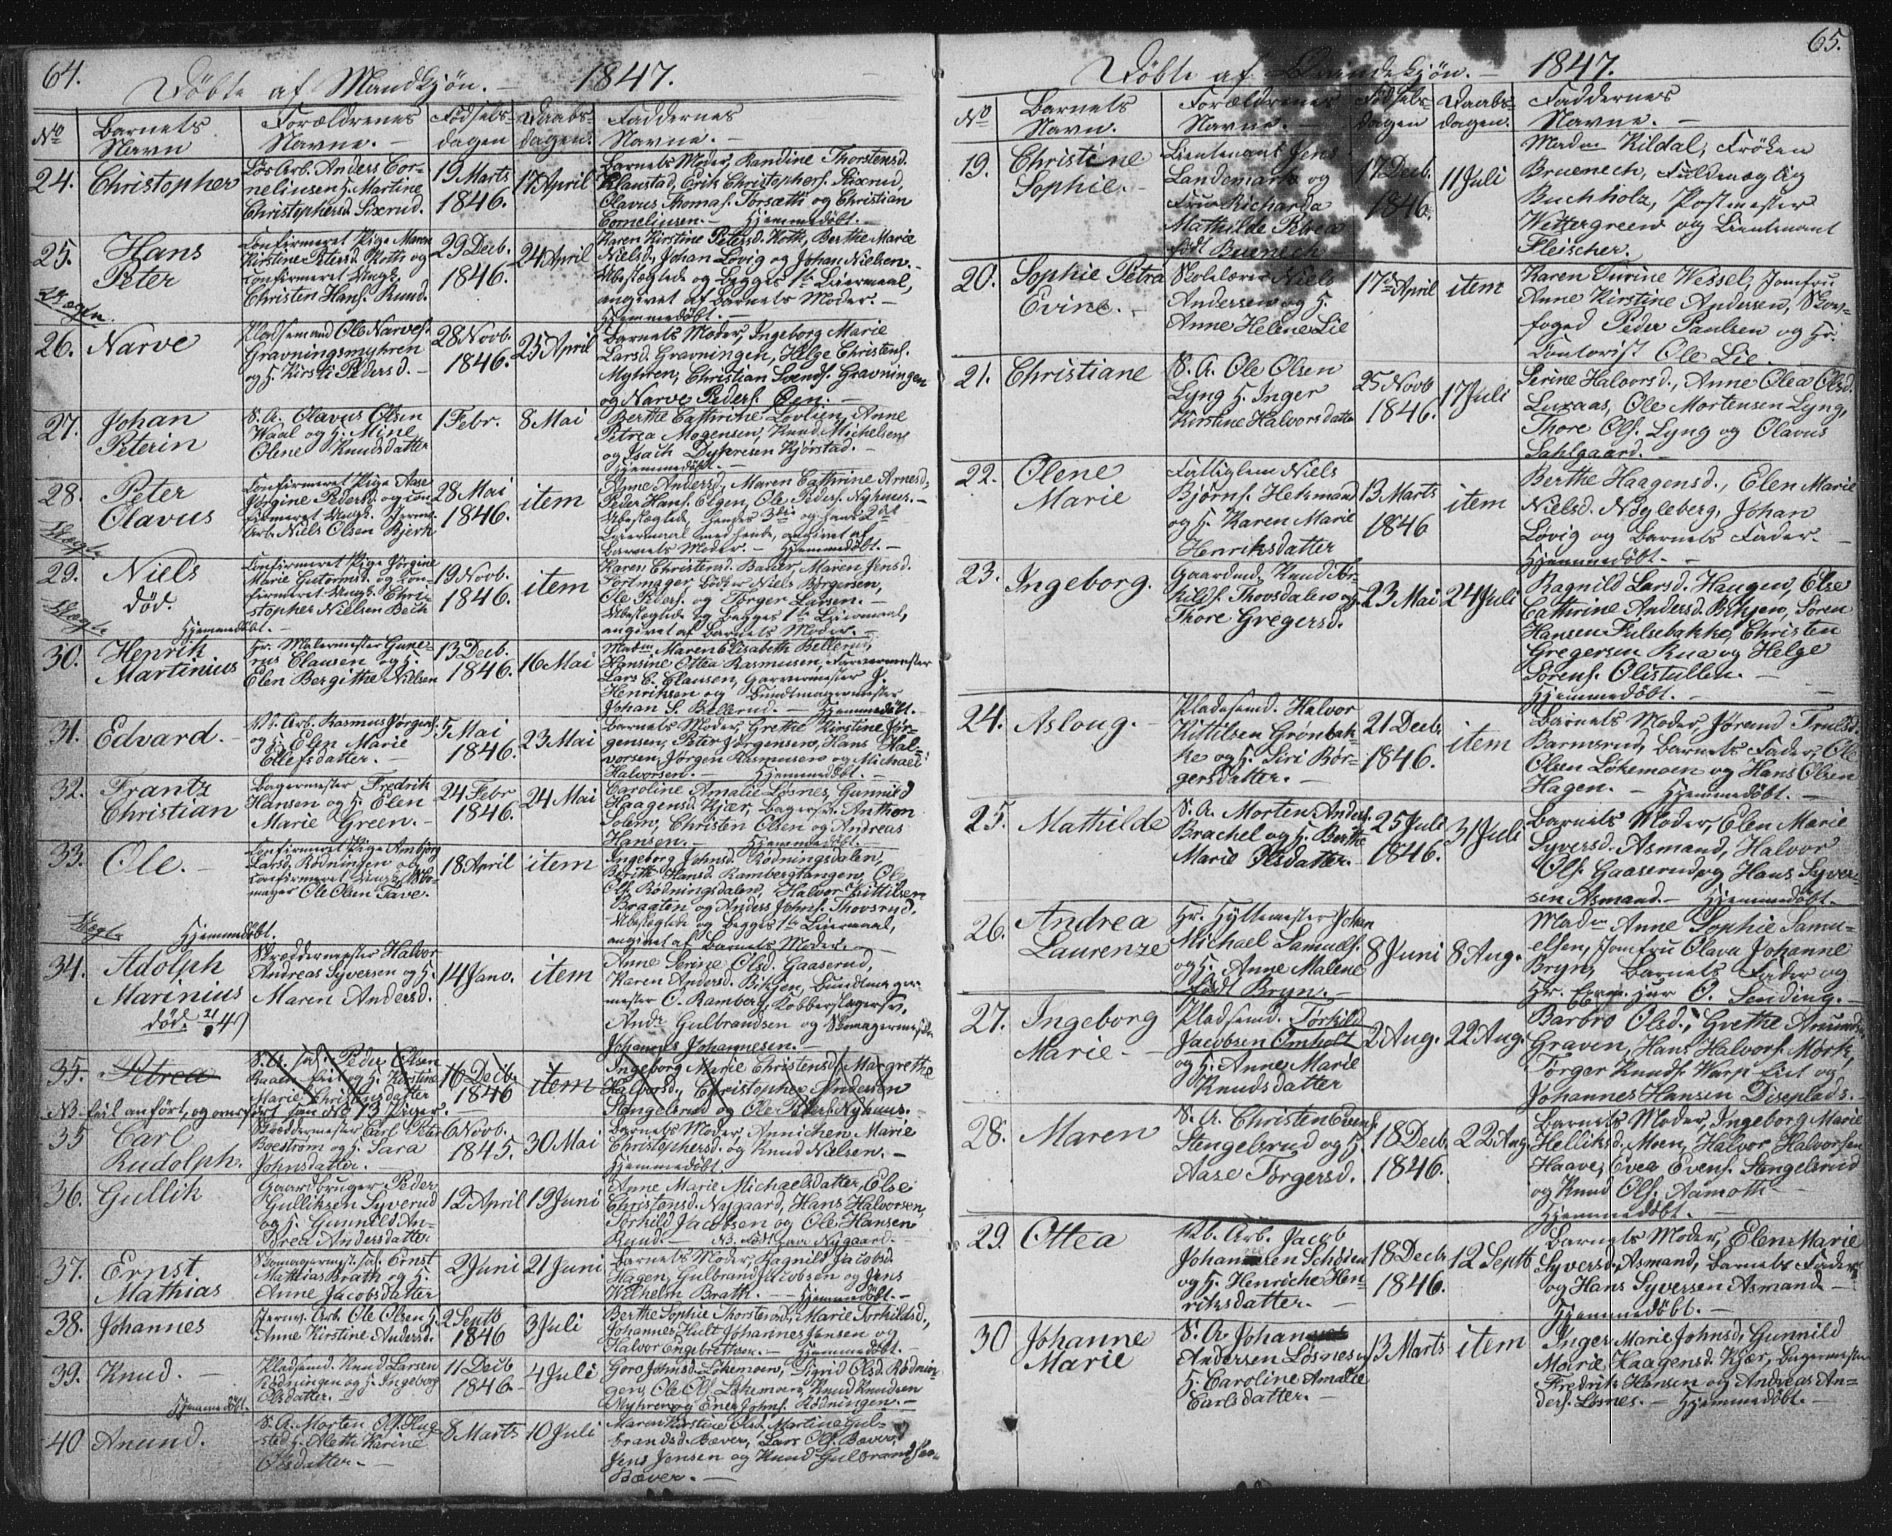 64.
Døbte af Mandkjøn. - 1847.
No
Barnets Navn
Forældrenes Navne. -
Fødsels-dagen
Daabs-dagen.
Faddernes Navne. -
24. Christopher
Løsarb. Anders Cor-
neliusen H. Martine
Christophersd. Sixrud.
19 Marts
1846.
17 April
Barnets Moder, Randine Thorstensd.
Klaustad, Erik Christophers. Sixrud,
Olavus Thomas. Torsæth og Christian
Corneliusen. - Hjemmedøbt. -
25. Hans
Peter
Uægte.
Confirmeret Pige Maren
Kirstine Peters d. Koth og
Confirmeret Ungk.
Christen Hans. Rund.
29 Decb.
1846.
24 April
Karen Kirstine Petersd. Koth, Berthe Marie
Nielsd, Johan Løvig og Johan Nielsen. -
Ubeslægtede og begges 1te Leiermaal,
angivet af Barnets Moder. -
Hjemmedøbt. -
26. Narve
Pladsemand Ole Narves.
Gravningsmyhren
og H. Kirsti Pedersd. -
28 Novb.
1846.
25 April
Barnets Moder, Ingeborg Marie
Larsd. Gravningen, Helge Christens.
Myhren, Christian Svends. Gravningen
og Narve Peders. Een. -
27. Johan
Peterin
S. A. Olavus Olsen
Waal og H. Mine
Olene Knudsdatter
1 Febr.
8 Mai
Berthe Cathrine Lovlien, Anne
Petrea Mogensen, Knud Michelsen
og Isach Dypresen Kjørstad. -
Hjemmedøbt. -
28. Peter
Olavus
Uægte
Confirmeret Pige Aase
Jørgine Peders. og con-
firmeret Ungk. Jerns-
Arb. Niels Olsen Bjerk
28 Mai
1846.
item
Anne Andersd, Maren Cathrine Arnesd,
Peder Hans. Elgen, Ole Peders. Nyhuus. -
Ubeslægtede hendes 3die og hans 2det
Leiermaal med hende, angivet af
Barnets Moder. - Hjemmedøbt. -
29. Niels
død.
Uægte
Hjemmedøbt. -
Confirmeret Pige Jørgine
Marie Gutormsd. og Con-
firmeret Ungk. Chri-
stopher Nielsen Bech
19 Novb.
1846.
item
Karen Christensd. Bauer, Maren Jensd.
Niels Børgersen,
Ole Peders. og Tørger Larsen. -
Ubeslægtede og begges 1te Leiermaal,
angivet af Barnets Moder. -
30. Henrik
Martinius
Hr. Malermester Gune-
rius Clausen og H.
Elen Bergithe Nielsen
13 Decb.
1846.
16 Mai
Madm Maren Elisabeth Bellerud,
Hansine Ottea Rasmusen, Farvermester
Lars C. Clausen, Garvermester J.
Henriksen og Bundtmagermester
Johan S. Bellerud. - Hjemmedøbt. -
31. Edvard. -
Arb. Rasmus Jørgens.
og H. Elen Marie
Ellefsdatter. -
5 Mai
1846.
23 Mai
Barnets Moder, Grethe Kirstine Jør-
gensen, Peter Jørgensen, Hans Hal-
vorsen, Jørgen Rasmusen og Michael
Halvorsen. - Hjemmedøbt. -
32. Frantz
Christian
Bagermester Fredrik
Hansen og H. Elen
Marie Green. -
24 Febr
1846.
24 Mai
Caroline Amalie Løsnes, Gunnild
Haagensd. Kjær, Bagersv. Anthon
Solem, Christen Olsen og Andreas
Hansen. Hjemmedøbt. -
33. Ole. -
Uægte Hjemmedøbt.
Confirmeret Pige Anbjørg
Larsd. Rødningen og
Confirmeret Ungk. Sko-
mager Ole Olsen Fave.
18 April
item
Ingeborg Johnsd. Rødningsdalen,
Berith Hansd. Rambergtangen, Ole
Ols. Rødningsdalen, Halvor Kittilsen
Braaten og Anders Johns. Thovsrud.
Ubeslægtede og begges 1te Leiermaal,
angivet af Barnets Moder. -
34. Adolph
Marinius
død. 21/9 49
Skræddermester Halvor
Andreas Syversen og H.
Maren Andersd.
14 Janv.
item
Anne Serine Olsd. Gaaserud,
Karen Andersd. Bikjen, Bundtmager-
mester O. Ramberg, Kobberslagersv.
Andr. Gulbrandsen og Skomagermester
Johannes Johannesen. -
35. Petrea
S. A. Peder Olsen
og H. Kirstine
Marie Christensdatter
16 Decb.
1846
item
Ingeborg Marie Christensd, Margrethe
Halvorsd., Christopher
Stengelsrud og Ole Peders. Nyhuus. -
NB feil anført, og overført No 13 Piger. -
35 Carl
Rudolph.
Skræddermester Carl Peter
Boestrøm og H. Sara
Johnsdatter. -
6 Novb.
1845.
30 Mai
Barnets Moder, Annichen Marie
Christophersd. og Knud Nielsen. -
Hjemmedøbt. -
36. Gullik
Gaardbruger Peder
Gulliksen Syverud
og H. Gunnild An-
drea Andersdatter
12 April
19 Juni
Anne Marie Michaelsdatter, Else
Christensd. Nygaard, Hans Halvorsen,
Torkild Jacobsen og Ole Hansen
Rund. - NB. født paa Nygaard. -
37. Ernst
Mathias
Skomagermest. Ernst
Mathias Brath og H.
Anne Jacobsdatter
2 Juni
21 Juni
Barnets Moder, Ragnild Jacobsd.
Hagen, Gulbrand Jacobsen og Jens
Wilhelm Brath. - Hjemmedøbt. -
38. Johannes
Jernv. Arb. Ole Olsen H.
Anne Kirstine Andersd.
2 Septb
1846
3 Juli
Berthe Sophie Thorstensd., Marie Torkildsd.,
Johannes Hult Johannes Jensen og
Halvor Engebrethsen. - Hjemmedøbt. -
39. Knud. -
Hjemmedøbt.
Pladsemd. Knud Larsen
Rødningen og H. Ingeborg
Olsdatter. -
11 Decb
1846. -
4 Juli
Goro Johnsd. Løkemoen, Sigrid Olsd. Rødnin-
gen, Ole Ols. Løkemoen, Knud Knudsen
Myhren og Ener Johns. Rødningen. -
40 Anund.
S. A. Morten Ols. Flug-
sted H. Aleth Karine
Olsdatter. -
8 Marts
10 Juli
Maren Kirstine Olsd, Martine Gul-
brandsd. Bæver, Lars Ols. Bæver,
Jens Jensen og Knud Gulbrandsen
Bæver. -
65.
Døbte af Qvindekjøn. - 1847.
No
Barnets Navn.
Forældrenes Navne. -
Fødsels-dagen
Daabs-dagen.
Faddernes Navne. -
19. Christine
Sophie. -
Lieutenant Jens
Landemark og
Frue Richarda
Mathilde Petrea
født Buenech
17 Decb.
1846.
11 Juli
Madm Kildal, Frøken
Bruenech, Fuldmægtig
Buchholz, Postmester
Wettergreen og Lieutenant
Fleischer.
20. Sophie Petra
Evine. -
Skolelærer Niels
Andersen og H.
Anne Helene Lie
17de April
item
Karen Turine Wessel, Jomfru
Anne Kirstine Andersen, Skov-
foged Peder Paulsen og Hr.
Contorist Ole Lie. -
21. Christiane
S. A. Ole Olsen
Lyng H. Inger
Kirstine Halvorsdatter
25 Novb
1846.
17 Juli
Serine Halvorsd., Anne Olea Olsd.
Luraas, Ole Mortensen Lyng,
Thore Ols. Lyng og Olavus
Sahlgaard. -
22. Olene
Marie
Fattiglem Niels
Bjørns. Hekmand
og H. Karen Marie
Henriksdatter
13 Marts
1846
item
Berthe Haagensd., Elen Marie
Nielsd. Nøgleberg, Johan
Løvig og Barnets Fader. -
Hjemmedøbt. -
23. Ingeborg.
Gaardmd. Knud Tor-
kilds. Thovsdalen og
Thore Gregersd.
23 Mai
24 Juli
Ragnild Larsd. Haugen, Else
Cathrine Andersd. Bikjen, Søren
Hansen Fulsebakke, Christen
Gregersen Rua og Helge
Sørens. Olistullen. -
Hjemmedøbt. -
24. Asloug. -
Pladsemd. Halvor
Kittilsen Grønbak-
ke og H. Siri Bør-
gersdatter. -
21 Decb.
1846.
item
Barnets Moder, Jørand Trulsd.
Barmsrud, Barnets Fader, Ole
Olsen Løkemoen og Hans Olsen
Hagen. - Hjemmedøbt. -
25. Mathilde
S. A. Morten Anders.
Brachel og H. Berthe
Marie Olsdatter. -
25 Juli
1846.
31 Juli
Barnets Moder, Elen Marie
Syversd. Asmand, Halvor
Ols. Gaaserud og Hans Syver-
sen Asmand. - Hjemmedøbt. -
26. Andrea
Laurenze
Hr. Hyttemester Johan
Michael Samuels.
og H. Anne Malene
født Bryn. -
8 Juni
8 Aug.
Madm Anne Sophie Samu-
elsen, Jomfru Olava Johanne
Bryn, Barnets Fader og
Hr. Exam. jur O. Sending. -
27. Ingeborg
Marie. -
Pladsemd. Torkild
Jacobsen Omholt
og H. Anne Marie
Knudsdatter
2 Aug.
22 Aug.
Barbro Olsd., Grethe Anunds.
Graven, Hans Halvors. Mørk,
Tørger Knuds. Warp Eiet og
Johannes Hansen Diseplads. -
28. Maren
S. A. Christen Evens.
Stengelsrud og H.
Aase Tørgersd.
18 Decb.
1846.
22 Aug
Barnets Moder, Ingeborg Marie
Helliksd. Moen, Halvor Halvorsen
Haave, Evea Evens. Stengelsrud
og Knud Ols. Aamoth -
Hjemmedøbt. -
29. Ottea
Arb. Jacob
Johannesen Schøien
og H. Henricke Hen-
riksdatter. -
18 Decb.
1846.
12 Septb
Barnets Moder, Elen Marie
Syversd. Asmand, Barnets Fader
og Hans Syversen Asmand -
Hjemmedøbt. -
30 Johanne
Marie
S. A. Johan
Andersen Løsnes og
H. Caroline Amalie
Carlsdatter. -
13 Marts
item
Inger Marie Johnsd, Gunnild
Marie Haagensd. Kjær, Bagermester
Fredrik Hansen og Andreas An-
ders. Løsnes. - Hjemmedøbt. -